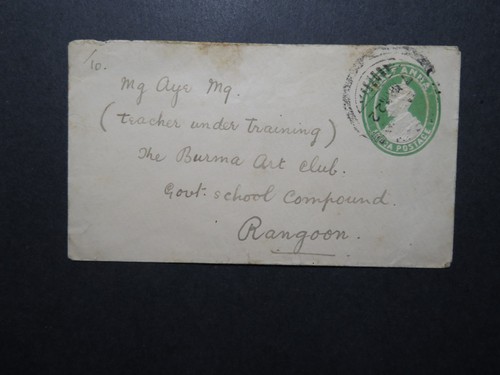 To.
Mg Aye Mg.
(teacher under training)
The Burma Art club.
Govt: school Compound.
Rangoon.
ANNA
INDIA POSTAGE